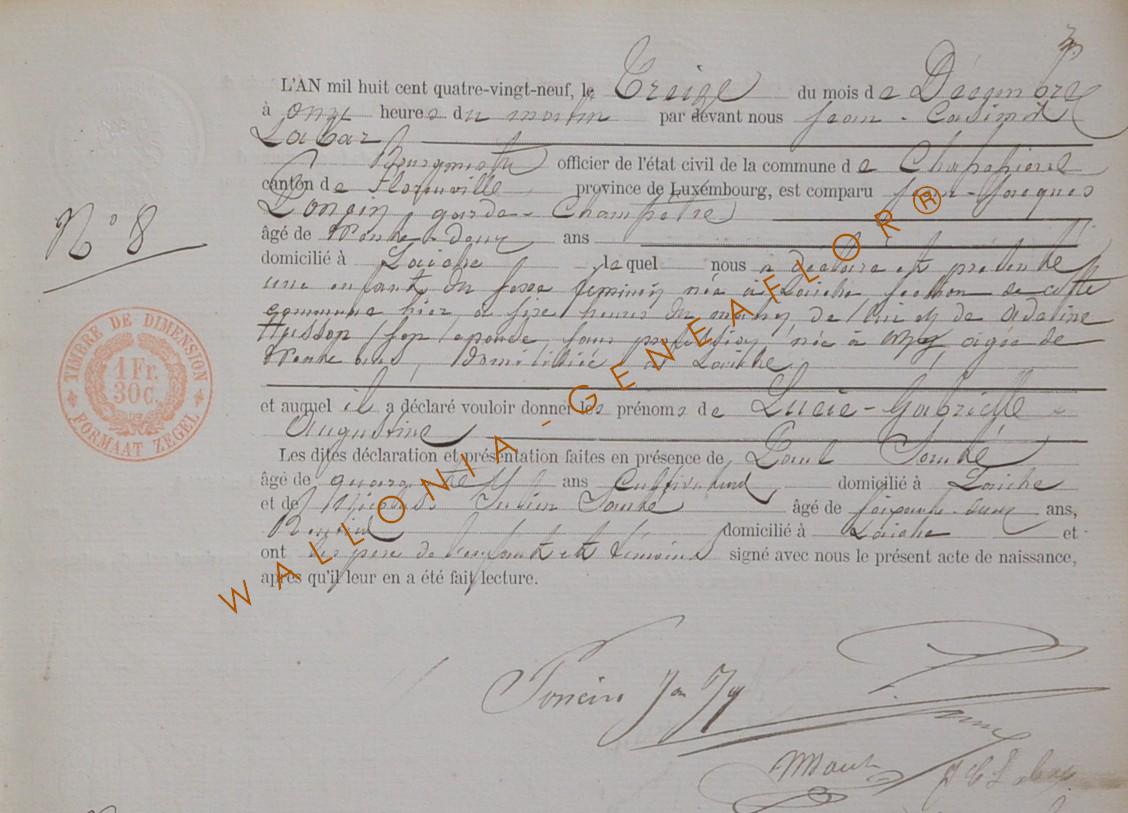 L'AN mil huit cent quatre-vingt-neuf, le Treize du mois de Décembre
à onze heures du matin par devant nous Jean-Casimir
Labar
Bourgmestre officier de l'état civil de la commune de Chassepierre
canton de Florenville province de Luxembourg, est comparu Jacques
garde-Champêtre
N° 8
âgé de trente-deux ans
domicilié à Laiche lequel nous a déclaré et présenté
une enfant du sexe féminin née à Laiche section de cette
commune hier, à six heures du matin, de lui et de Adeline
Husson, son épouse, sans profession, née à âgée de
trente ans, domiciliée à Laiche
TIMBRE DE DIMENSION
1 Fr.
30 C.
FORMAAT ZEGEL
et auquel il a déclaré vouloir donner les prénoms de Lucie-Gabrielle
Augustine
Les dites déclaration et présentation faites en présence de
âgé de quarante ans Cultivateur domicilié à Laiche
et de âgé de soixante-deux ans,
Rentier domicilié à Laiche et
ont les père de l'enfant et témoins signé avec nous le présent acte de naissance,
après qu'il leur en a été fait lecture.
WALLONIA - GENEAFLOR®